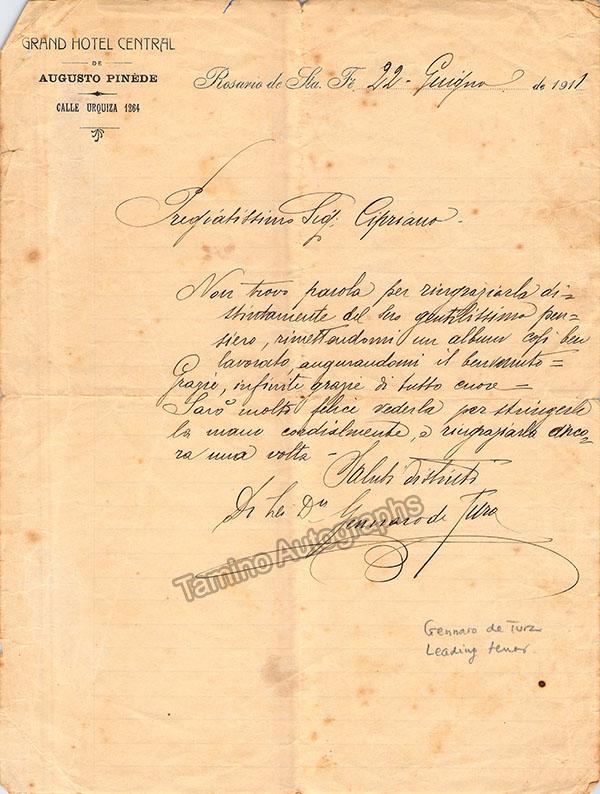 GRAND HOTEL CENTRAL
DE
AUGUSTO PINÈDE
CALLE URQUIZA 1264
Rosario de Sta. Fé, 22- Guigno de 1911
Pregiatissimo Sigr. Cipriano-
Non trovo parola per ringraziarla di=
stintamente del Loro gentilissimo pen-
siero, rimettandomi un album così ben
lavorato, augurandomi il benvenuto=
Grazie, infinite grazie di tutto cuore=
Sarò molto felice vederla per stringerle
la mano cordialmente, e ringraziarla anco=
ra una volta-
Saluti distinti
Di Lei Dmo Gennaro de Tura
Tamino Autographs
Gennaro de Tura
Leading tenor.